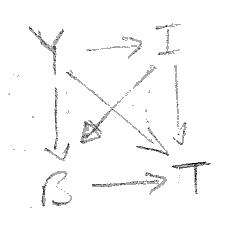 Y I
B T